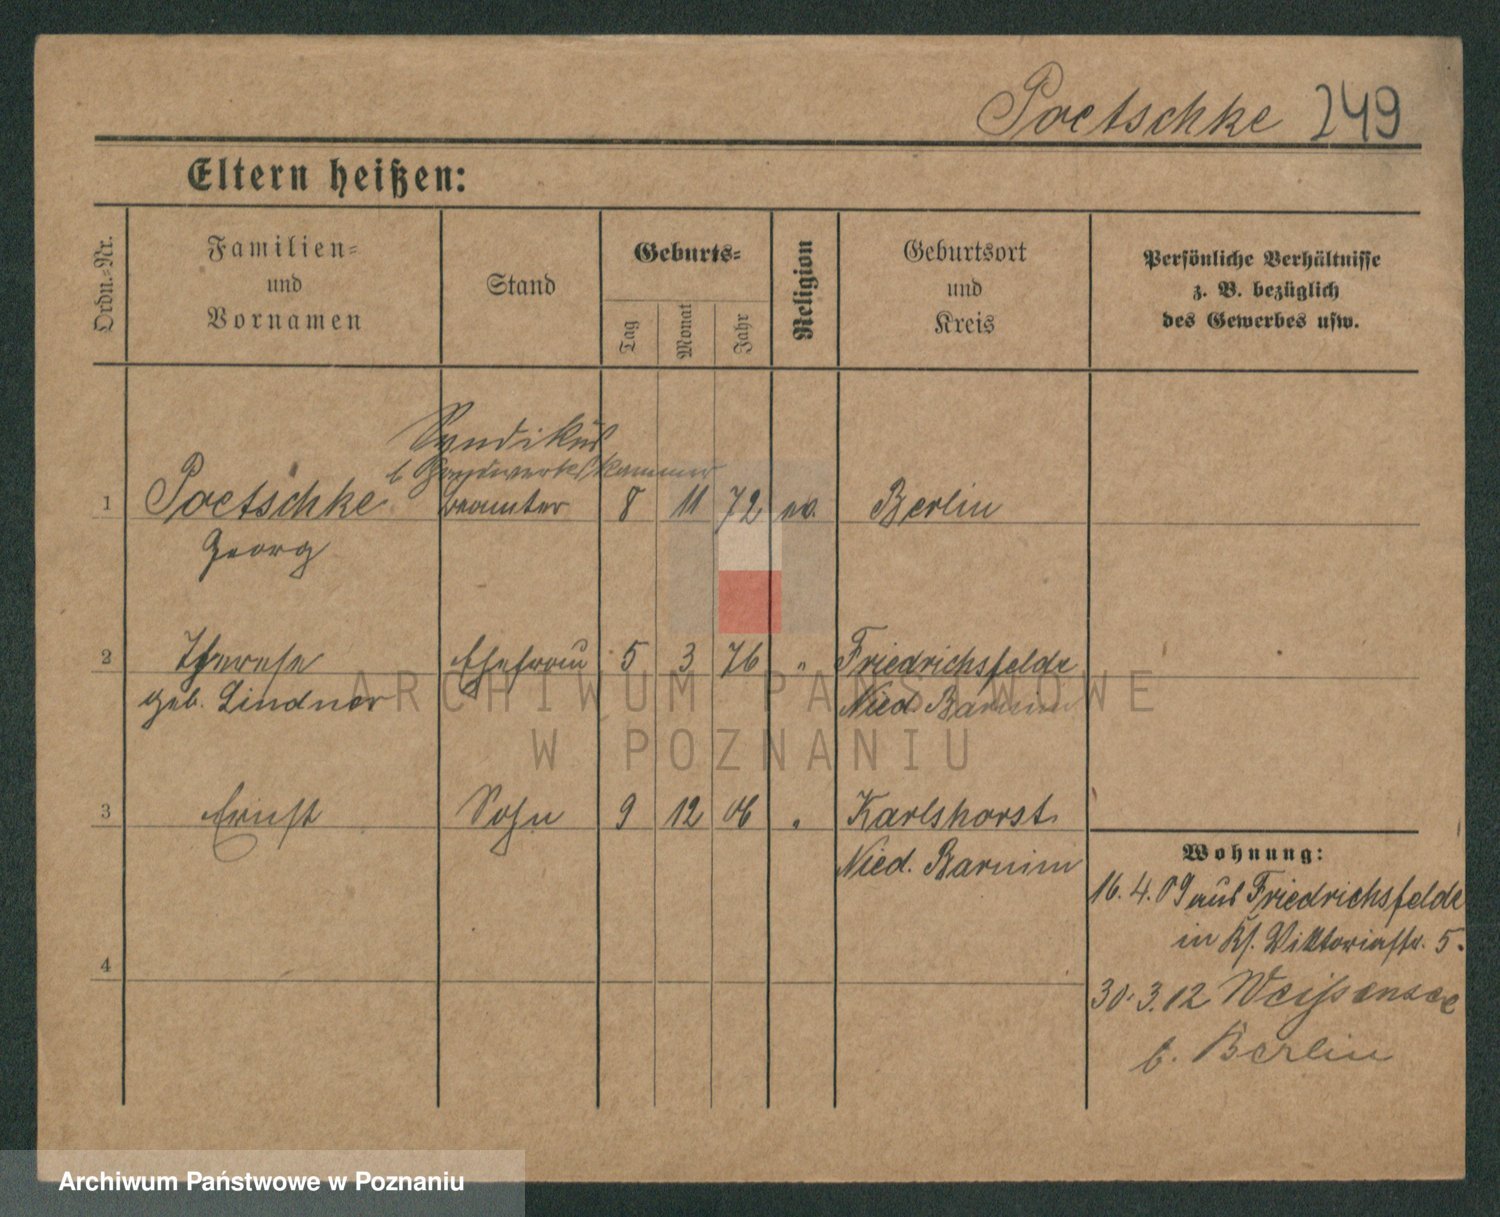 Poetschke 249
Eltern heißen:
Ordn.-Nr.
Familien-
und
Vornamen
Stand
Geburts-
Tag
Monat
Jahr
Religion
Geburtsort
und
Kreis
Persönliche Verhältnisse
z. B. bezüglich
des Gewerbes usw.
Syndikus
b Handwerkskammer
1 Poetschke beamter 8 11 72 ev. Berlin
Georg
2 Therese Ehefrau 5 3 76 " Friedrichsfelde
geb. Lindner Nied. Barnim
3 Ernst Sohn 9 12 06 " Karlshorst
Nied. Barnim
4
Wohnung:
16.4.09 aus Friedrichsfelde
in Kf. Viktoriastr. 5.
30.3.12 Weissensee
b. Berlin
ARCHIWUM PAŃSTWOWE
W POZNANIU
Archiwum Państwowe w Poznaniu